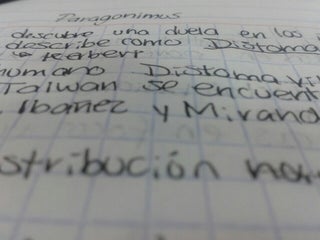 Paragonimus
descubre una duela en los
describe como Distoma
kerberr
humano Distoma
Taiwan se encuent
Ibañez y Mirand
stribución